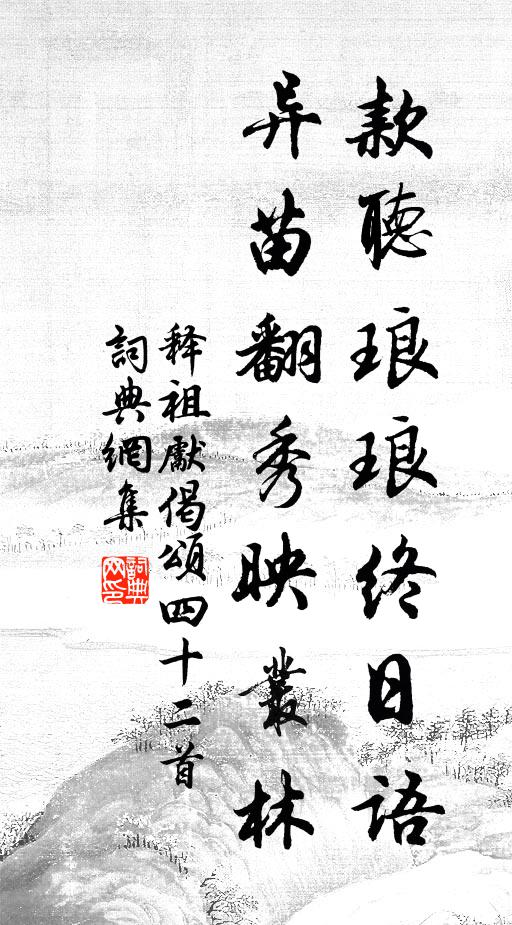 款聽琅琅終日語
异苗翻秀映叢林
释祖獻偈頌四十二首
詞典網集
詞典
网印